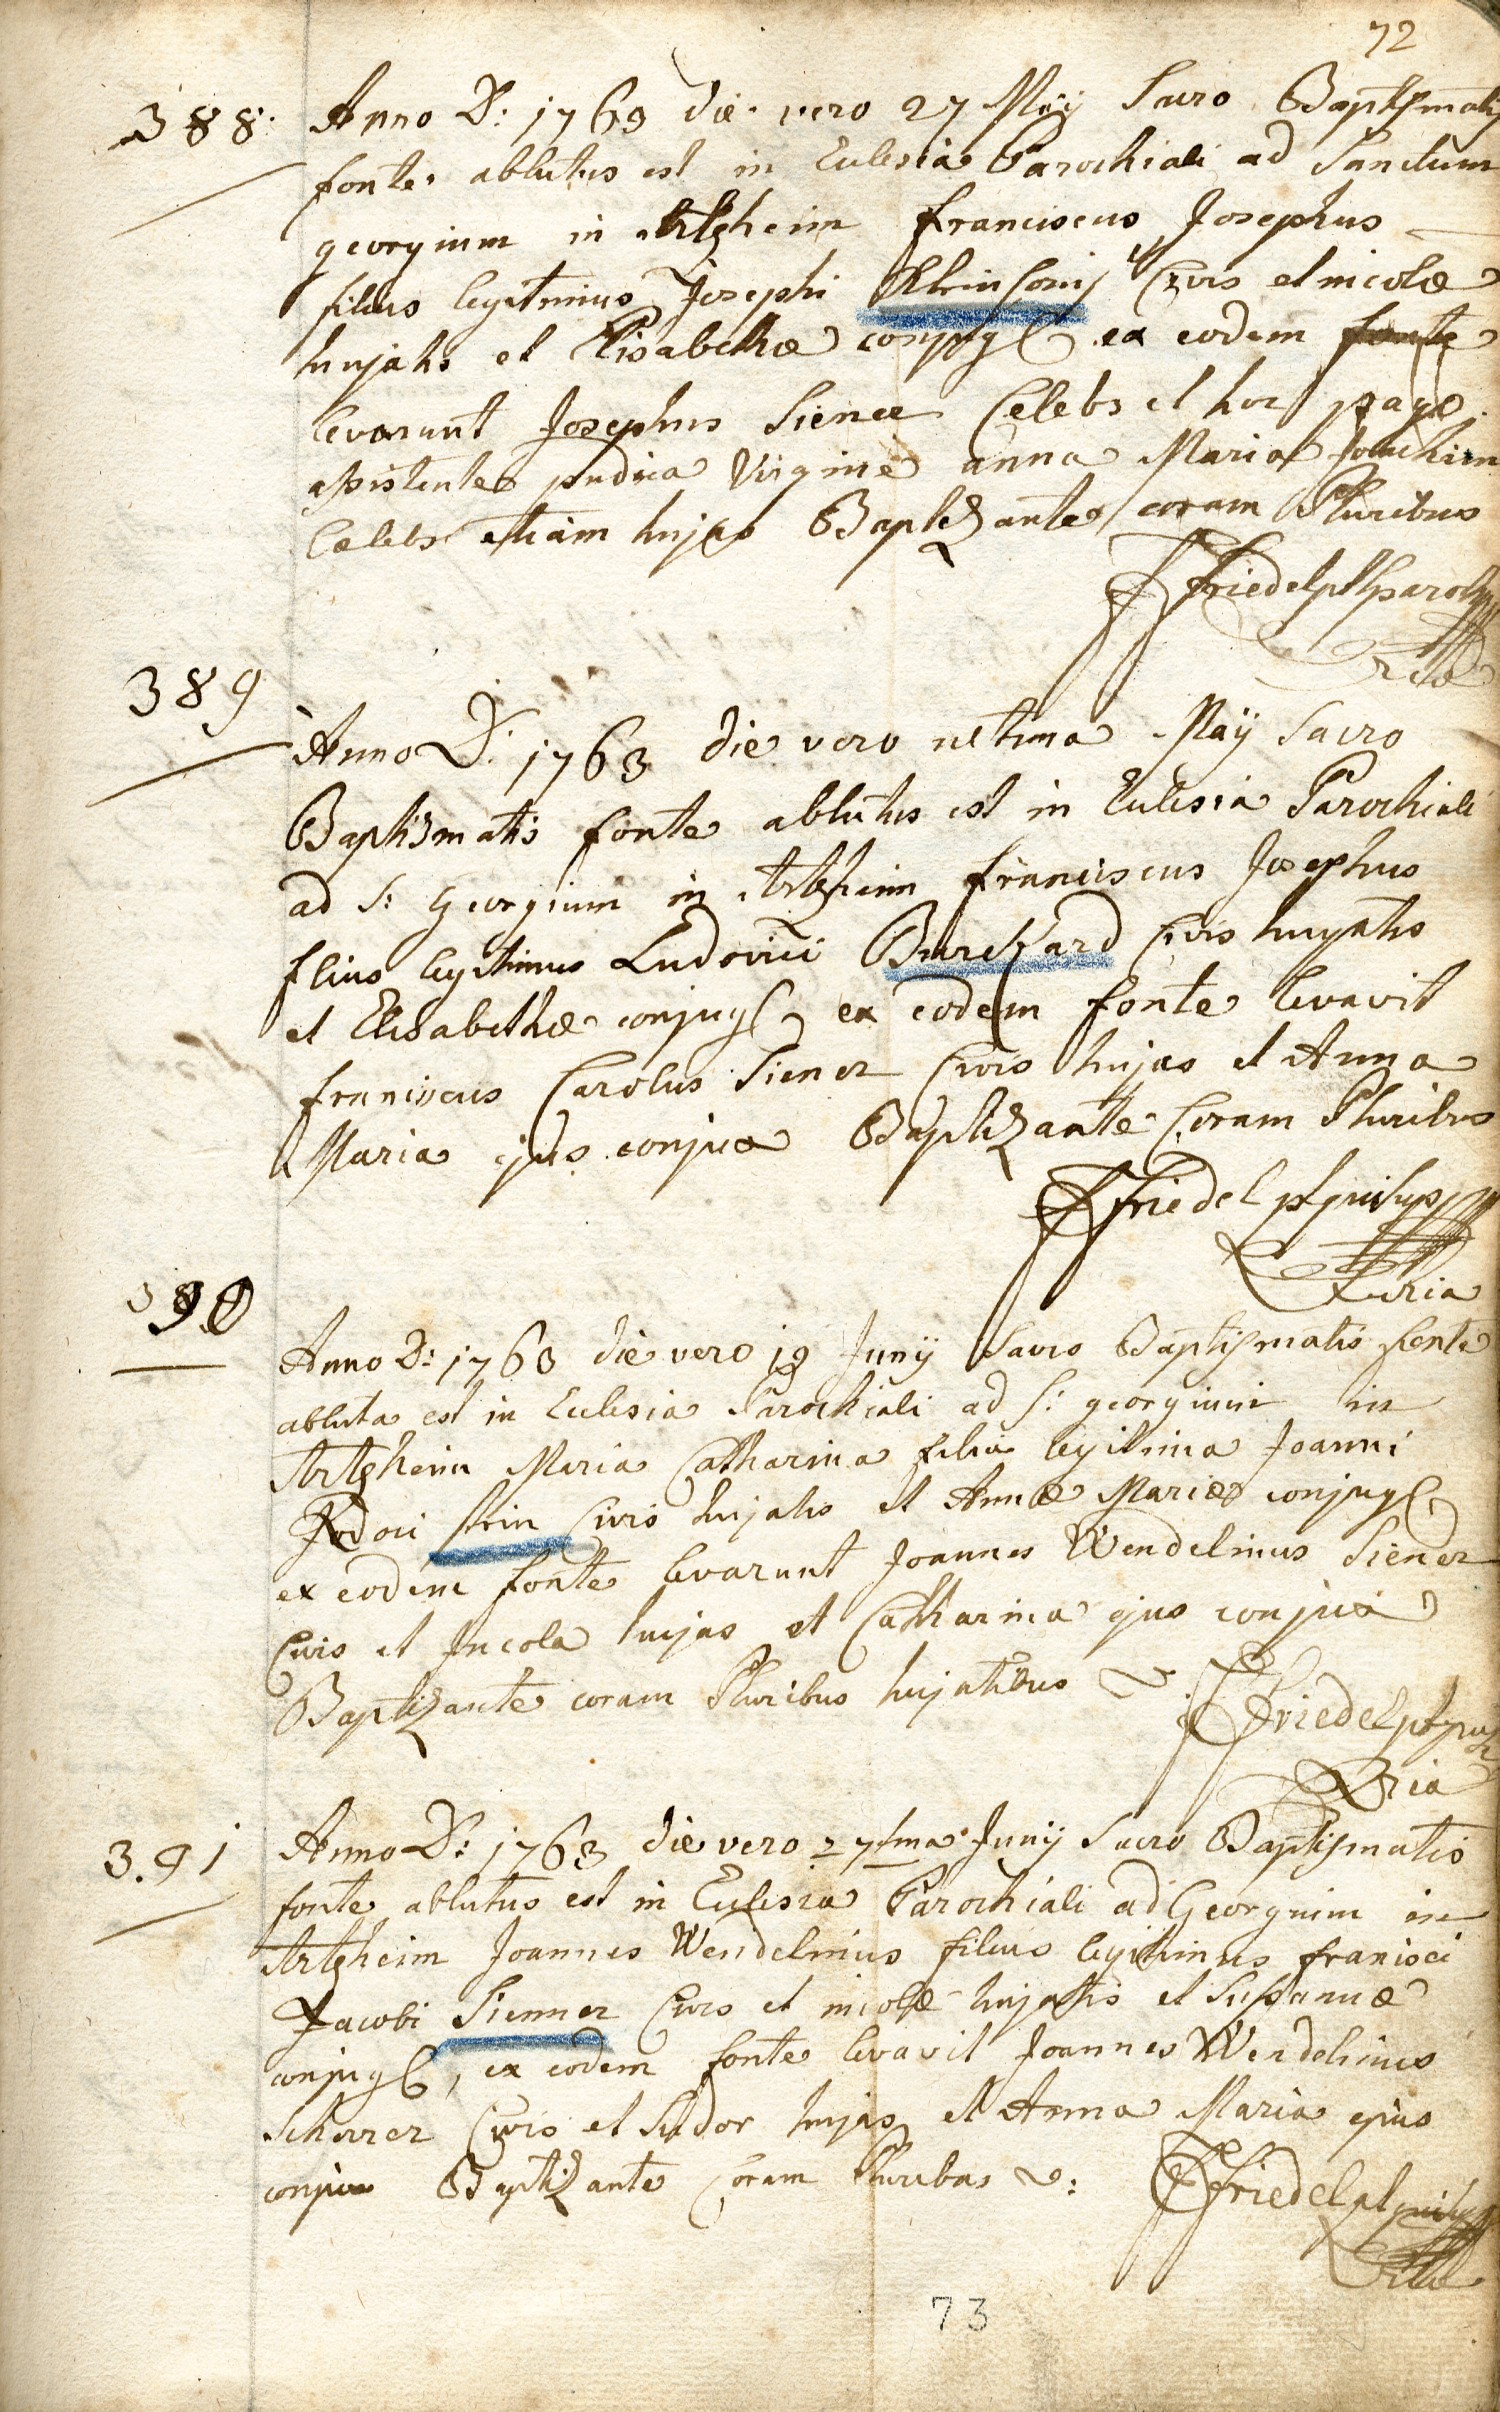 72
388. Anno D: 1763 die vero 27 Maÿ Sacro Baptismatis
fonte ablutus est in Eclesia Parochiali ad Sanctum
georgium in Artzheim franciscus Josephus
filius legitimus Josephi Civis et incolæ
hujatis et Elisabethæ conjug ex eodem fonte
levarunt Josephus Siener Celebs et hoc pago
assistente pudica Virgine anna Maria
Celebs etiam hujas Baptizante coram Pluribus
Friedel
389 Anno D: 1763 die vero ultima Maÿ Sacro
Baptismatis fonte ablutus est in Eclesia Parochiali
ad S: Georgium in Artzheim franciscus Josephus
filius legitimus Ludovici Burckard Civis hujatis
et Elisabethæ conjug ex eodem fonte levavit
franciscus Carolus Siener Civis hujas et Anna
Maria ejus conjux Baptizante Coram Pluribus
Friedel
390
Anno D: 1763 die vero 19 Junÿ Sacro Baptismatis fonte
abluta est in Eclesia Parochiali ad S: georgium in
Artzheim Maria Catharina filia legitima Joanni
Jodoci Civis hujatis et Annæ Mariæ conjug
ex eodem fonte levarunt Joannes Wendelinus Siener
Civis et Incola hujas et Catharina ejus conjux
Baptizante coram Pluribus hujatibus Friedel
391 Anno D: 1763 die vero 27tma Junÿ Sacro Baptismatis
fonte ablutus est in Eclesia Parochiali ad Georgium in
Artzheim Joannes Wendelinus filius legitimus francisci
Jacobi Sienner Civis et incolæ hujatis et Susannæ
conjug, ex eodem fonte levavit Joannes Wendelinus
Scherrer Civis et Sutor hujas et Anna Maria ejus
conjux Baptizante Coram Pluribus Friedel
73